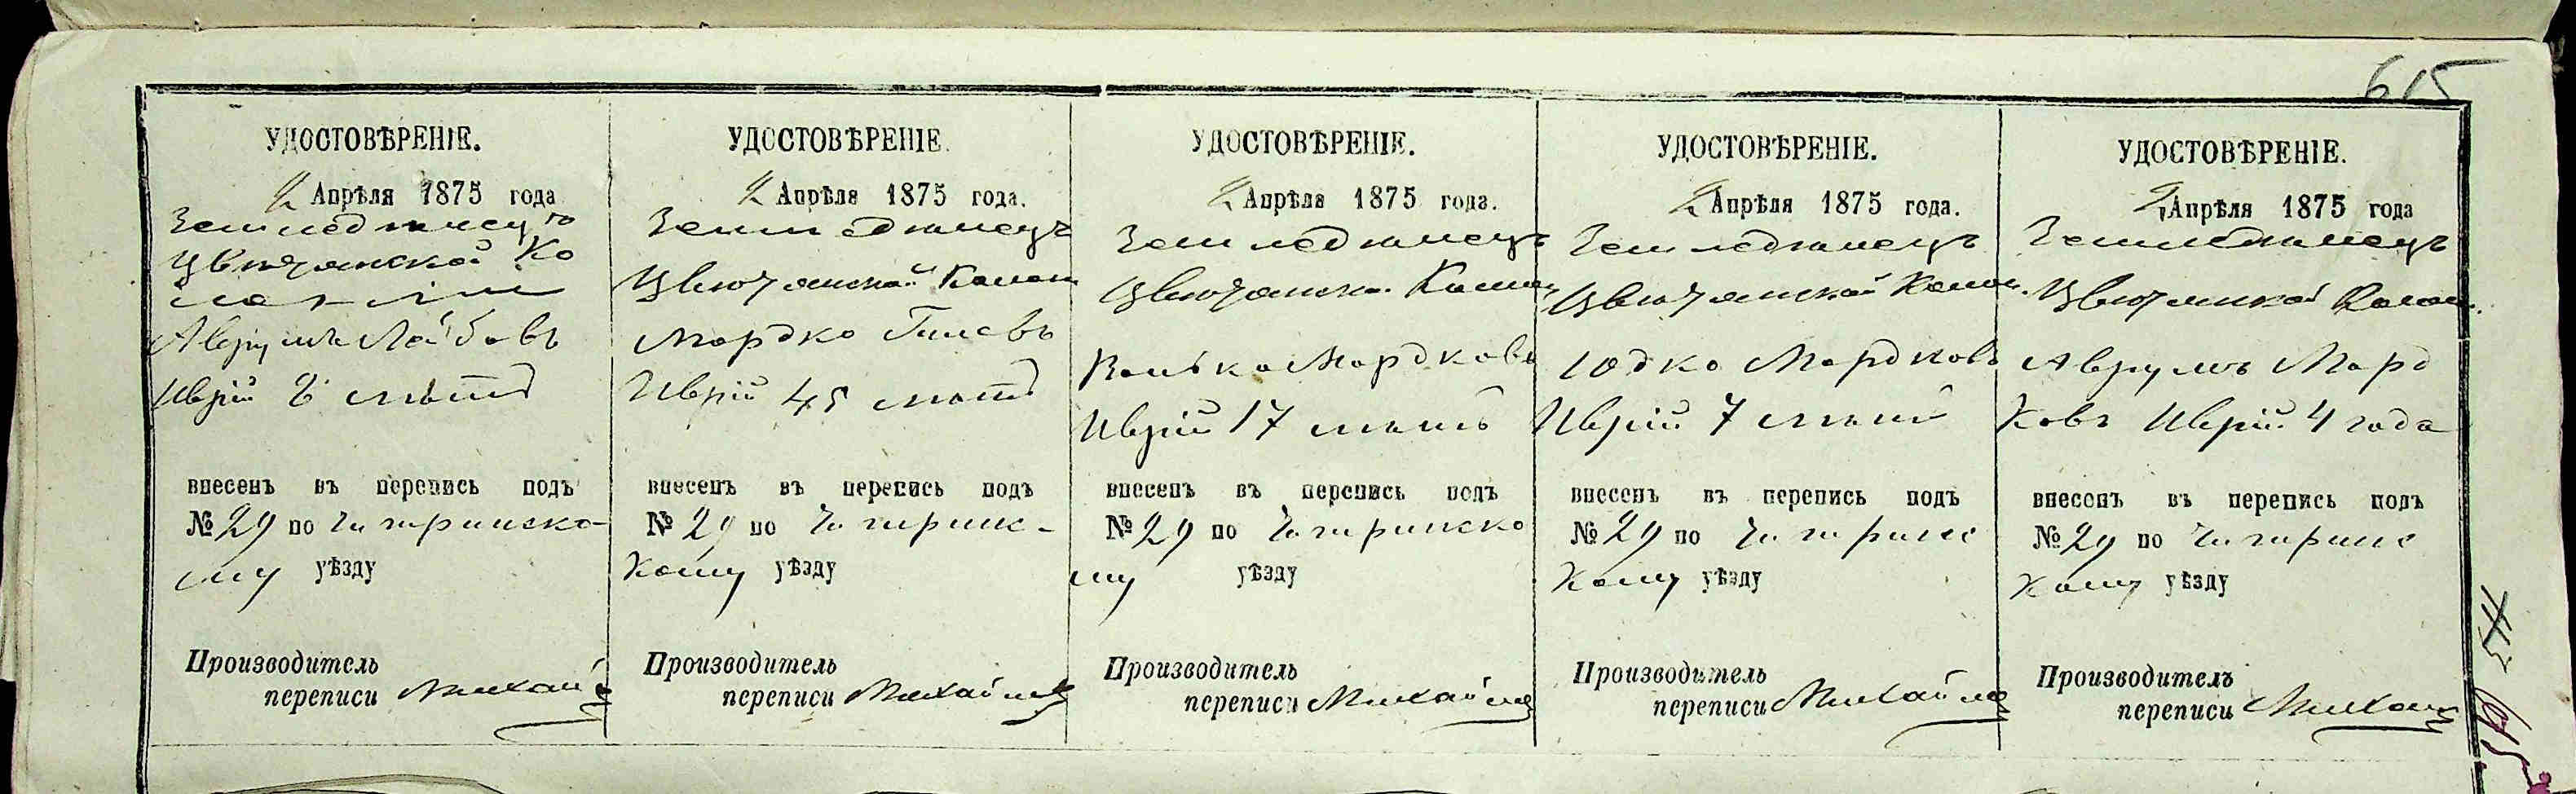 615
УДОСТОВѢРЕНІЕ.
2 Апрѣля 1875 года
Земледѣлецъ
Ко
Аврумъ Лейбовъ
Иврій лѣтъ
внесенъ въ перепись подъ
№ 29 по Чигиринско-
му уѣзду
Производитель
переписи Михайло
УДОСТОВѢРЕНІЕ.
2 Апрѣля 1875 года.
Земледѣлецъ
Колон
Мордко
Иврій 45 лѣтъ
внесенъ въ перепись подъ
№ 29 по Чигиринс-
кому уѣзду
Производитель
переписи Михайло
УДОСТОВѢРЕНІЕ.
2 Апрѣля 1875 года.
Земледѣлецъ
Колон
Волько Мордковъ
Иврій 17 лѣтъ
внесенъ въ перепись подъ
№ 29 по Чигиринско
му уѣзду
Производитель
переписи Михайло
УДОСТОВѢРЕНІЕ.
2 Апрѣля 1875 года.
Земледѣлецъ
Колон.
Юдко Мордковъ
Иврій 7 лѣтъ
внесенъ въ перепись подъ
№ 29 по Чигиринс
кому уѣзду
Производитель
переписи Михайло
УДОСТОВѢРЕНІЕ.
2 Апрѣля 1875 года
Земледѣлецъ
Колон.
Аврумъ Морд
ковъ Иврій 4 года
внесенъ въ перепись подъ
№ 29 по Чигиринс
кому уѣзду
Производитель
переписи Михайло